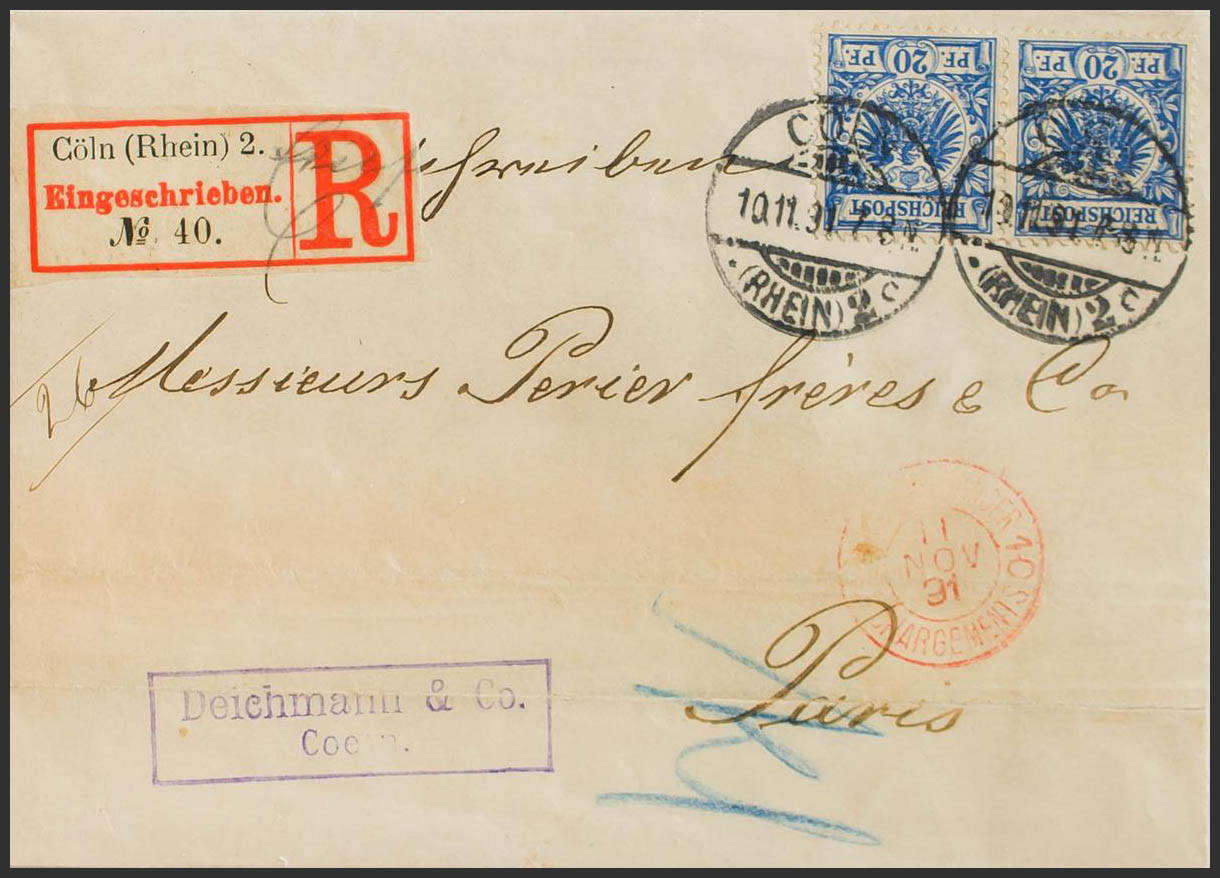 20 PF. PF. 20 PF. PF.
REICHSPOST REICHSPOST
Cöln (Rhein) 2.
Eingeschrieben.
№ 40.
R
10.11.91. 7-8 N.
(RHEIN) 2 c
10.11.91. 7-8 N.
(RHEIN) 2 c
26
Messieurs Perier frères & Co.
10
11
NOV
91
CHARGEMENTS
Paris
Deichmann & Co.